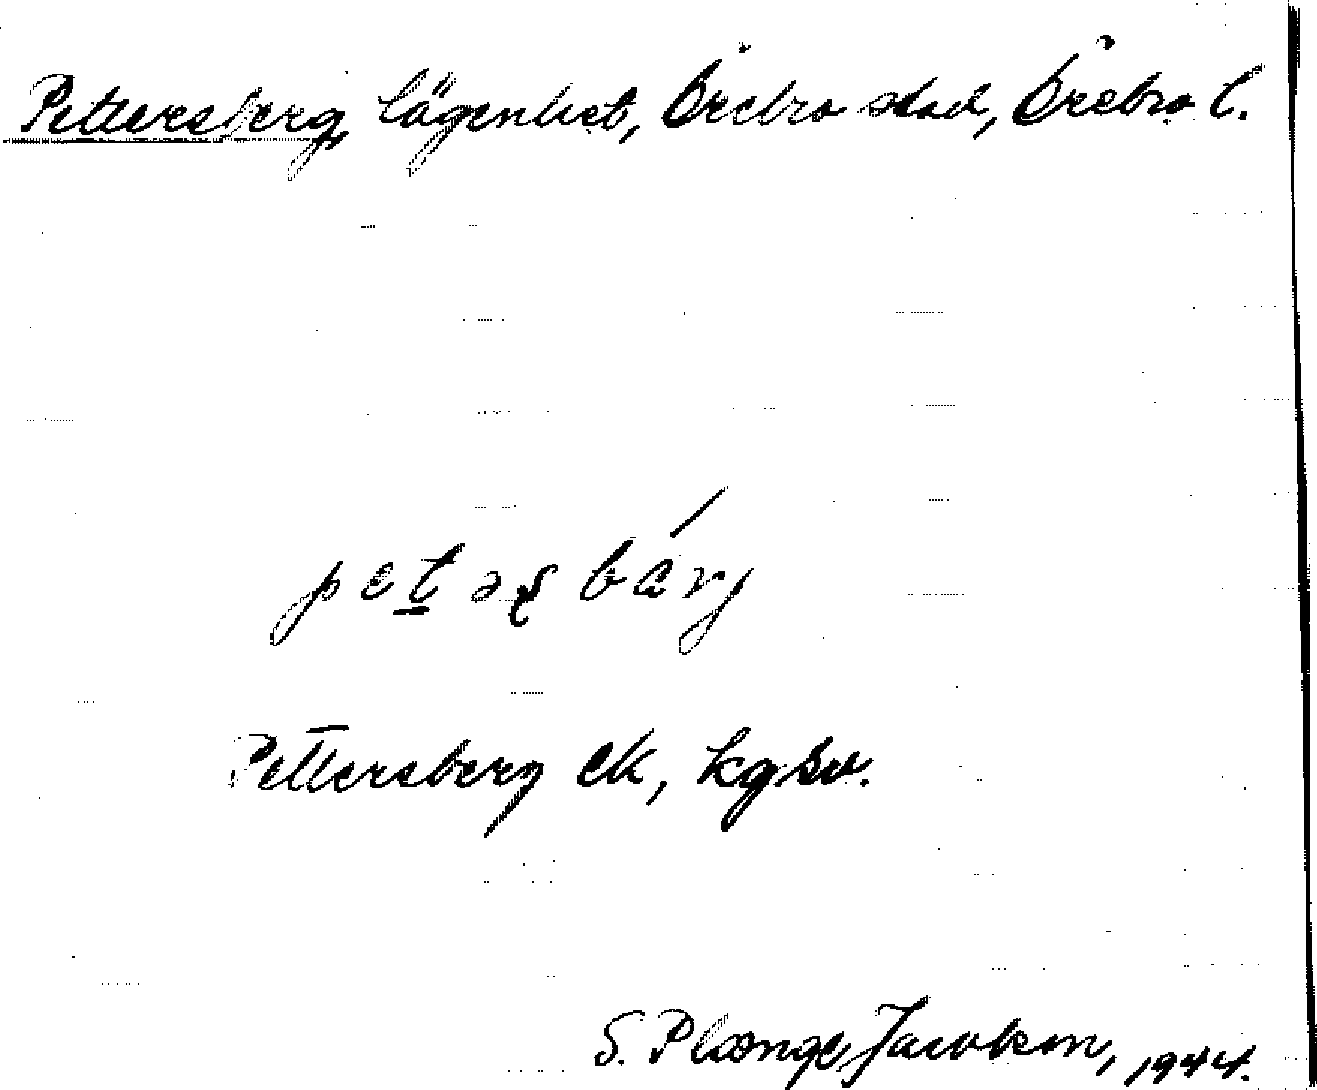 Pettersberg, lägenhet, Örebro stad, Örebro l.
pet̲əʂbárj
Pettersberg EK, kgsv.
S. Plænge Jacobson, 1944.